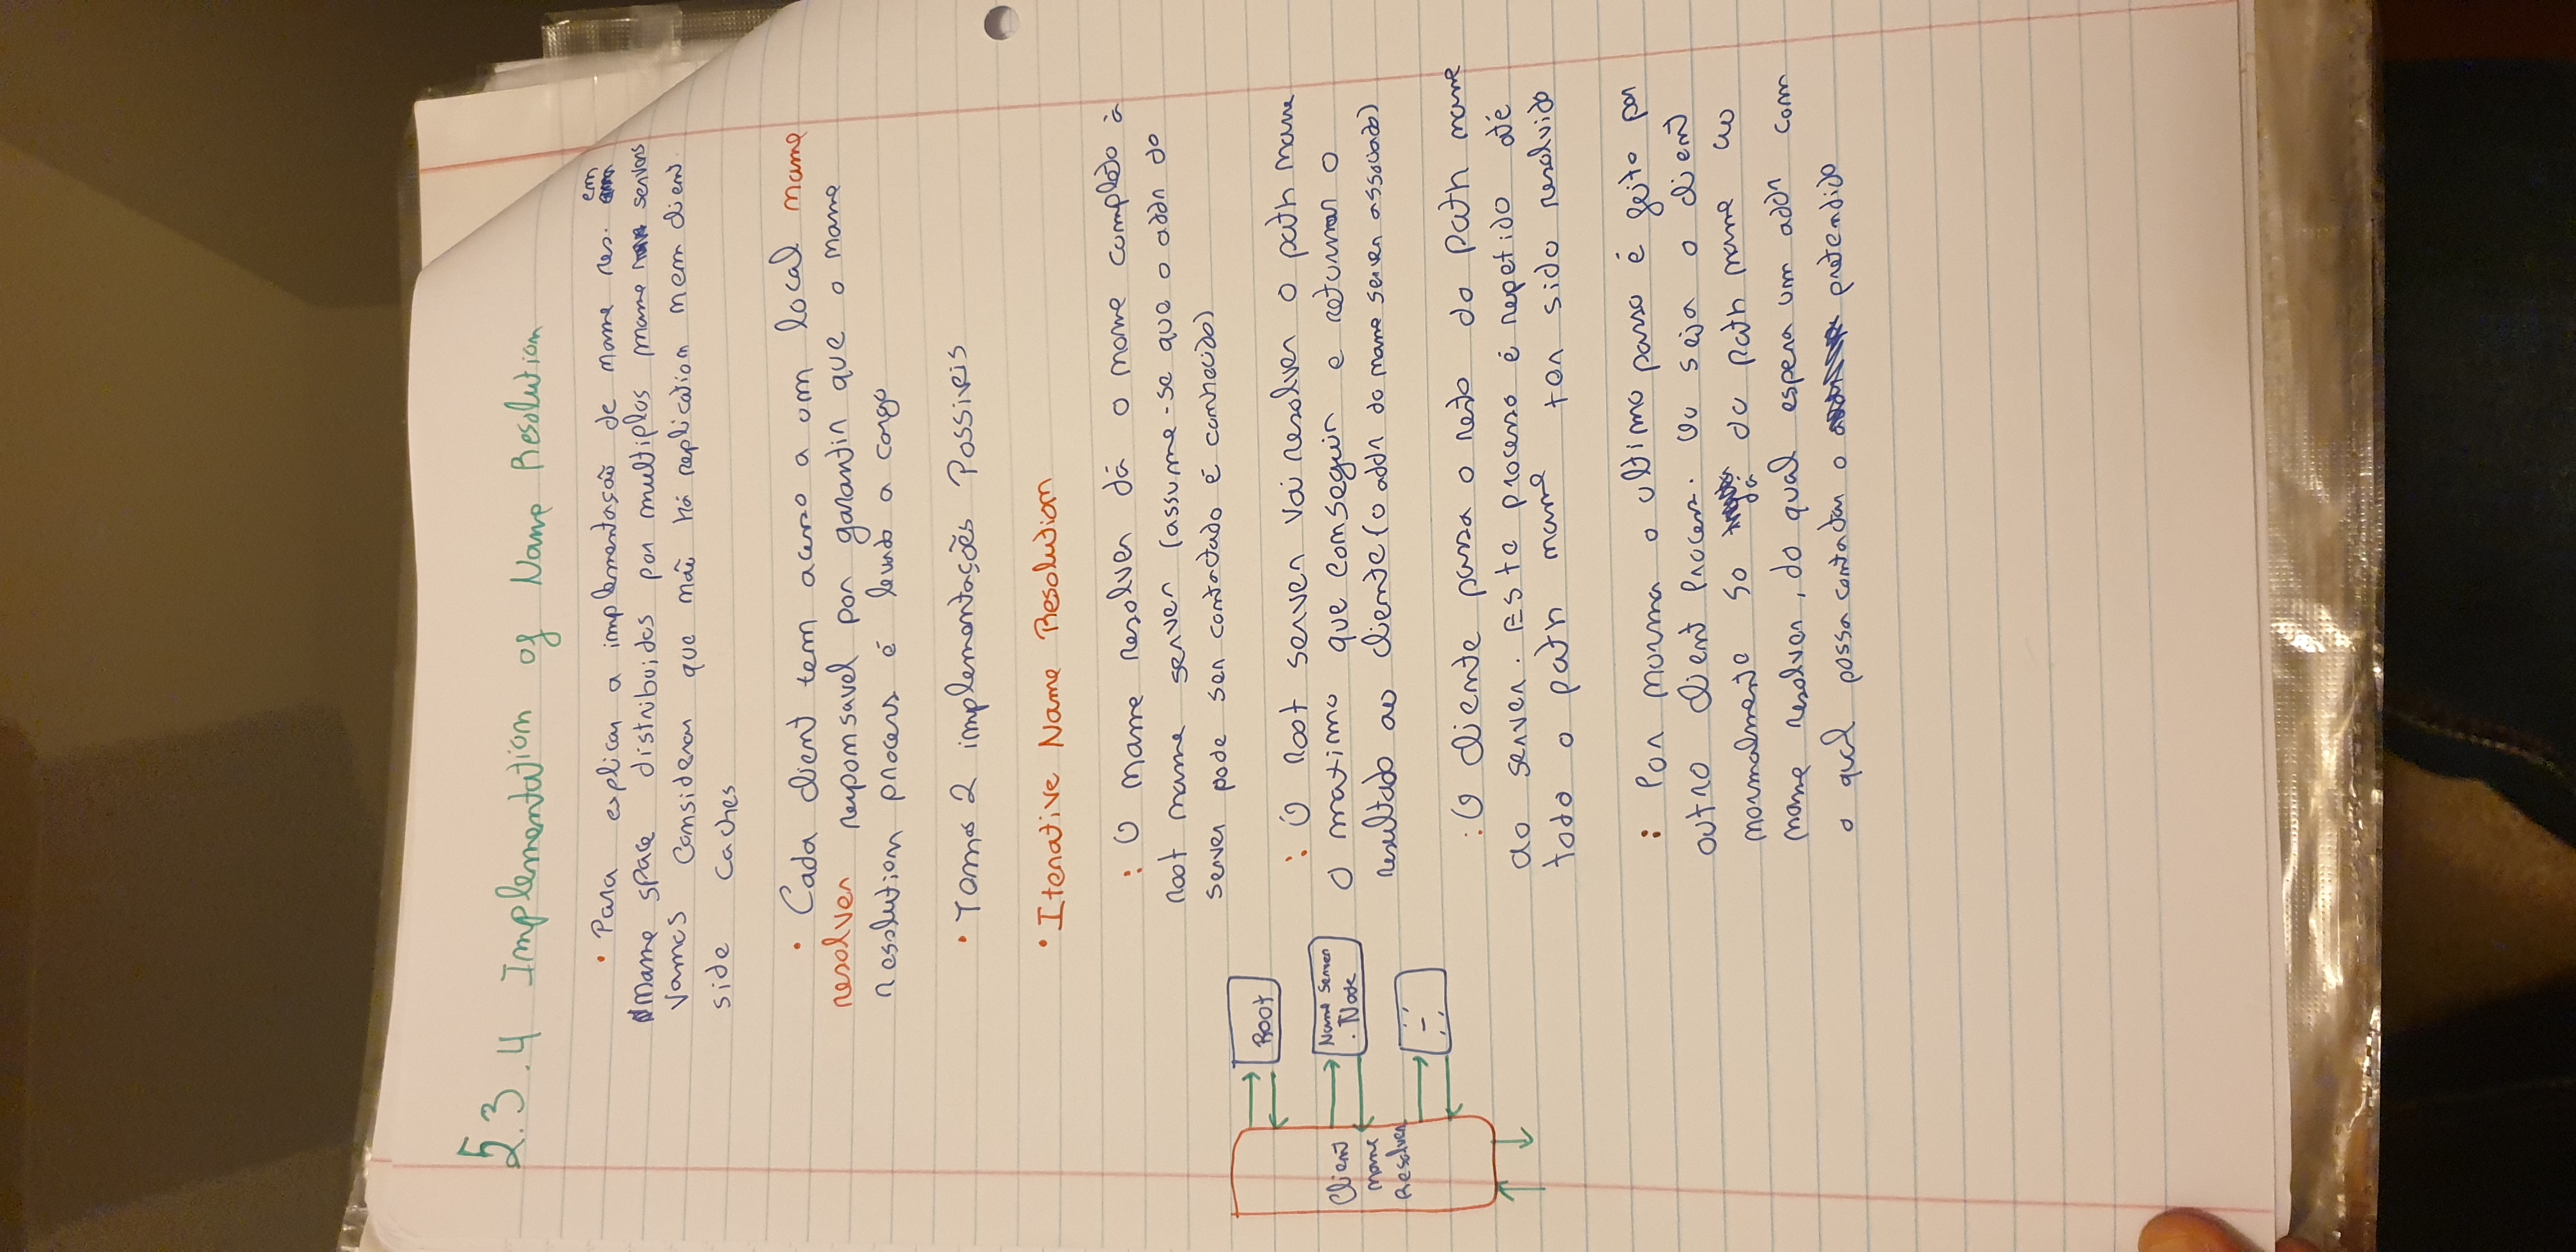 5.3.4 Implementation of Name Resolution
• Para explicar a implementação de name res. em
name space distribuidos por multiplos name servers
Vamos Considerar que não há replication nem client
side Caches
• Cada client tem acesso a um local name
resolver responsavel por garantir que o name
resolution process é levado a cargo
• Temos 2 implementações Possiveis
• Iterative Name Resolution
: O name resolver dá o nome completo à
root name server (assume-se que o addr do
server pode ser contactado é conhecido)
: O Root server vai resolver o path name
o maximo que conseguir e retornar o
resultado ao cliente (o addr do name server associado)
: O cliente passa o resto do Path name
ao server. Este processo é repetido até
todo o path name ter sido resolvido
: Por norma o ultimo passo é feito por
outro client Process. Ou seja o client
normalmente so dá do path name ao
name resolver, do qual espera um addr com
o qual possa contactar o pretendido
Client
name
Resolver
Root
Name Server
. Node